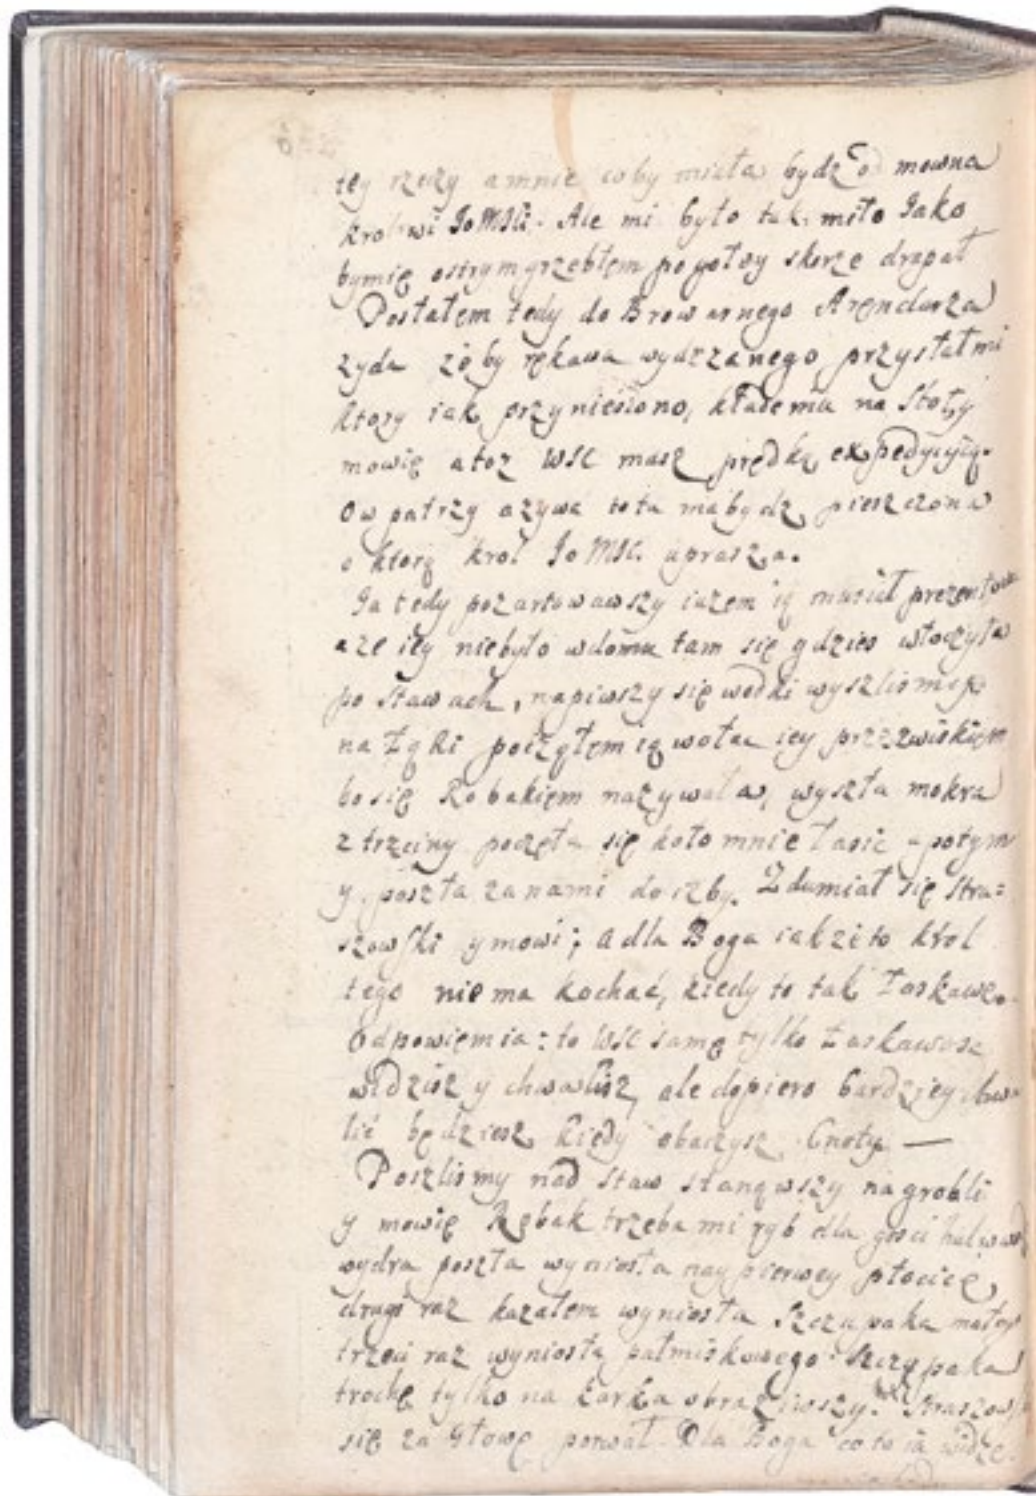 tey rzeczy a mnie coby miała bydz od mowna
krolowi Jo MSCi. Ale mi było tak miło Jako
bymię ostrym grzebłem pogołey skorze drapał
Posłałem tedy do Browarnego Aręndarza
zyda zėby rękawa wydrzanego przysłał mi
ktory iak przyniesiono, kładę mu na Stoły
mowię atoz WSC masz prędką expedycyią.
Ow patrzy azywa to ta ma bydz pieszczona
o ktorą krol Jo MSC. uprasza.
Ja tedy pozartowawszy iuzem ią musiał prezentowac
aze iey niebyło wdomu tam się gdzies włoczyła
po stawach, napiwszy się wodki wyszlismy
na Łąki począłem ią wołac iey przezwiskiem
bo się Robakiem nazywała, wyszła mokra
z trzciny poczęła się koło mnie łasic a potym
y poszła zanami do izby. Zdumiał się Stra=
szowski y mowi; a dla Boga iakze to krol
tego nie ma kochać, kiedy to tak Łaskawe.
Odpowięm ia: to WSC samę tylko Łaskawosc
widzisz y chwalisz, ale dopiero bardziey chwa-
lić będziesz kiedy obaczysz Cnoty —
Poszlismy nad staw stanąwszy na grobli
y mowię Robak trzeba mi ryb dla gosci hul w wodę
wydra poszła wyniosła naypierwey płocicę,
drugi raz kazałem wyniosła Szczupaka małego
trzeci raz wyniosła połmiskowego szczupaka
trochę tylko na karku obraziwszy. Straszowski
się za Głowę porwał. Dla Boga co to ia widzę.